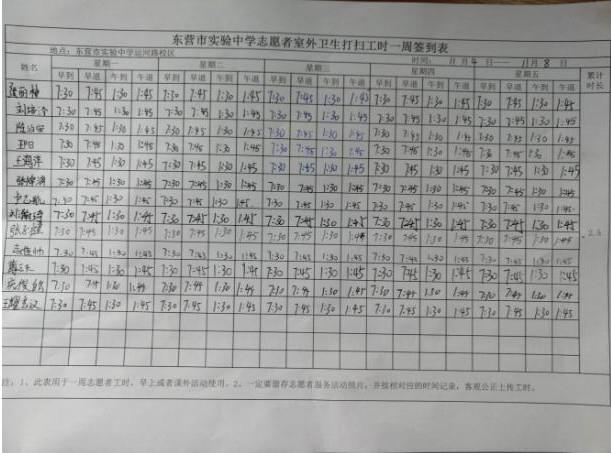 东营市实验中学志愿者室外卫生打扫工时一周签到表
地点：东营市实验中学运河路校区 时间：11月4日——11月8日
姓名 星期一 星期二 星期三 星期四 星期五 累计时长
早到 早退 午到 午退 早到 早退 午到 午退 早到 早退 午到 午退 早到 早退 午到 午退 早到 早退 午到 午退
7:30 7:45 1:30 1:45 7:30 7:45 1:30 1:45 7:30 7:45 1:30 1:45 7:30 7:45 1:30 1:45 7:30 7:45 1:30 1:45
7:30 7:45 1:30 1:45 7:30 7:45 1:30 1:45 7:30 7:45 1:30 1:45 7:30 7:45 1:30 1:45 7:30 7:45 1:30 1:45
7:30 7:45 1:30 1:45 7:30 7:45 1:30 1:45 7:30 7:45 1:30 1:45 7:30 7:45 1:30 1:45 7:30 7:45 1:30 1:45
7:30 7:45 1:30 1:45 7:30 7:45 1:30 1:45 7:30 7:45 1:30 1:45 7:30 7:45 1:30 1:45 7:30 7:45 1:30 1:45
7:30 7:45 1:30 1:45 7:30 7:45 1:30 1:45 7:30 7:45 1:30 1:45 7:30 7:45 1:30 1:45 7:30 7:45 1:30 1:45
7:30 7:45 1:30 1:45 7:30 7:45 1:30 1:45 7:30 7:45 1:30 1:45 7:30 7:45 1:30 1:45 7:30 7:45 1:30 1:45
7:30 7:45 1:30 1:45 7:30 7:45 1:30 1:45 7:30 7:45 1:30 1:45 7:30 7:45 1:30 1:45 7:30 7:45 1:30 1:45
7:30 7:45 1:30 1:45 7:30 7:45 1:30 1:45 7:30 7:45 1:30 1:45 7:30 7:45 1:30 1:45 7:30 7:45 1:30 1:45
7:30 7:45 1:30 1:45 7:30 7:45 1:30 1:45 7:30 7:45 1:30 1:45 7:30 7:45 1:30 1:45 7:30 7:45 1:30 1:45
7:30 7:45 1:30 1:45 7:30 7:45 1:30 1:45 7:30 7:45 1:30 1:45 7:30 7:45 1:30 1:45 7:30 7:45 1:30 1:45
7:30 7:45 1:30 1:45 7:30 7:45 1:30 1:45 7:30 7:45 1:30 1:45 7:30 7:45 1:30 1:45 7:30 7:45 1:30 1:45
7:30 7:45 1:30 1:45 7:30 7:45 1:30 1:45 7:30 7:45 1:30 1:45 7:30 7:45 1:30 1:45 7:30 7:45 1:30 1:45
7:30 7:45 1:30 1:45 7:30 7:45 1:30 1:45 7:30 7:45 1:30 1:45 7:30 7:45 1:30 1:45 7:30 7:45 1:30 1:45
注：1、此表用于一周志愿者工时，早上或者课外活动使用。2、一定要留存志愿者服务活动照片，并按相对应的时间记录，客观公正上传工时。